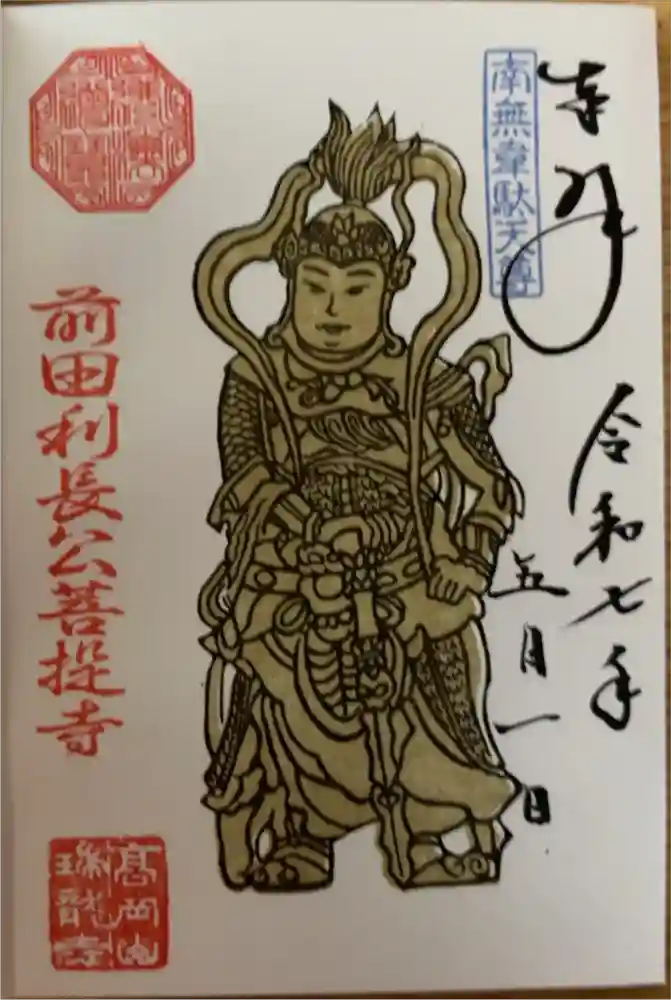 奉拝
令和七年
五月一日
南無韋駄天尊
前田利長公菩提寺
高岡山
瑞龍寺